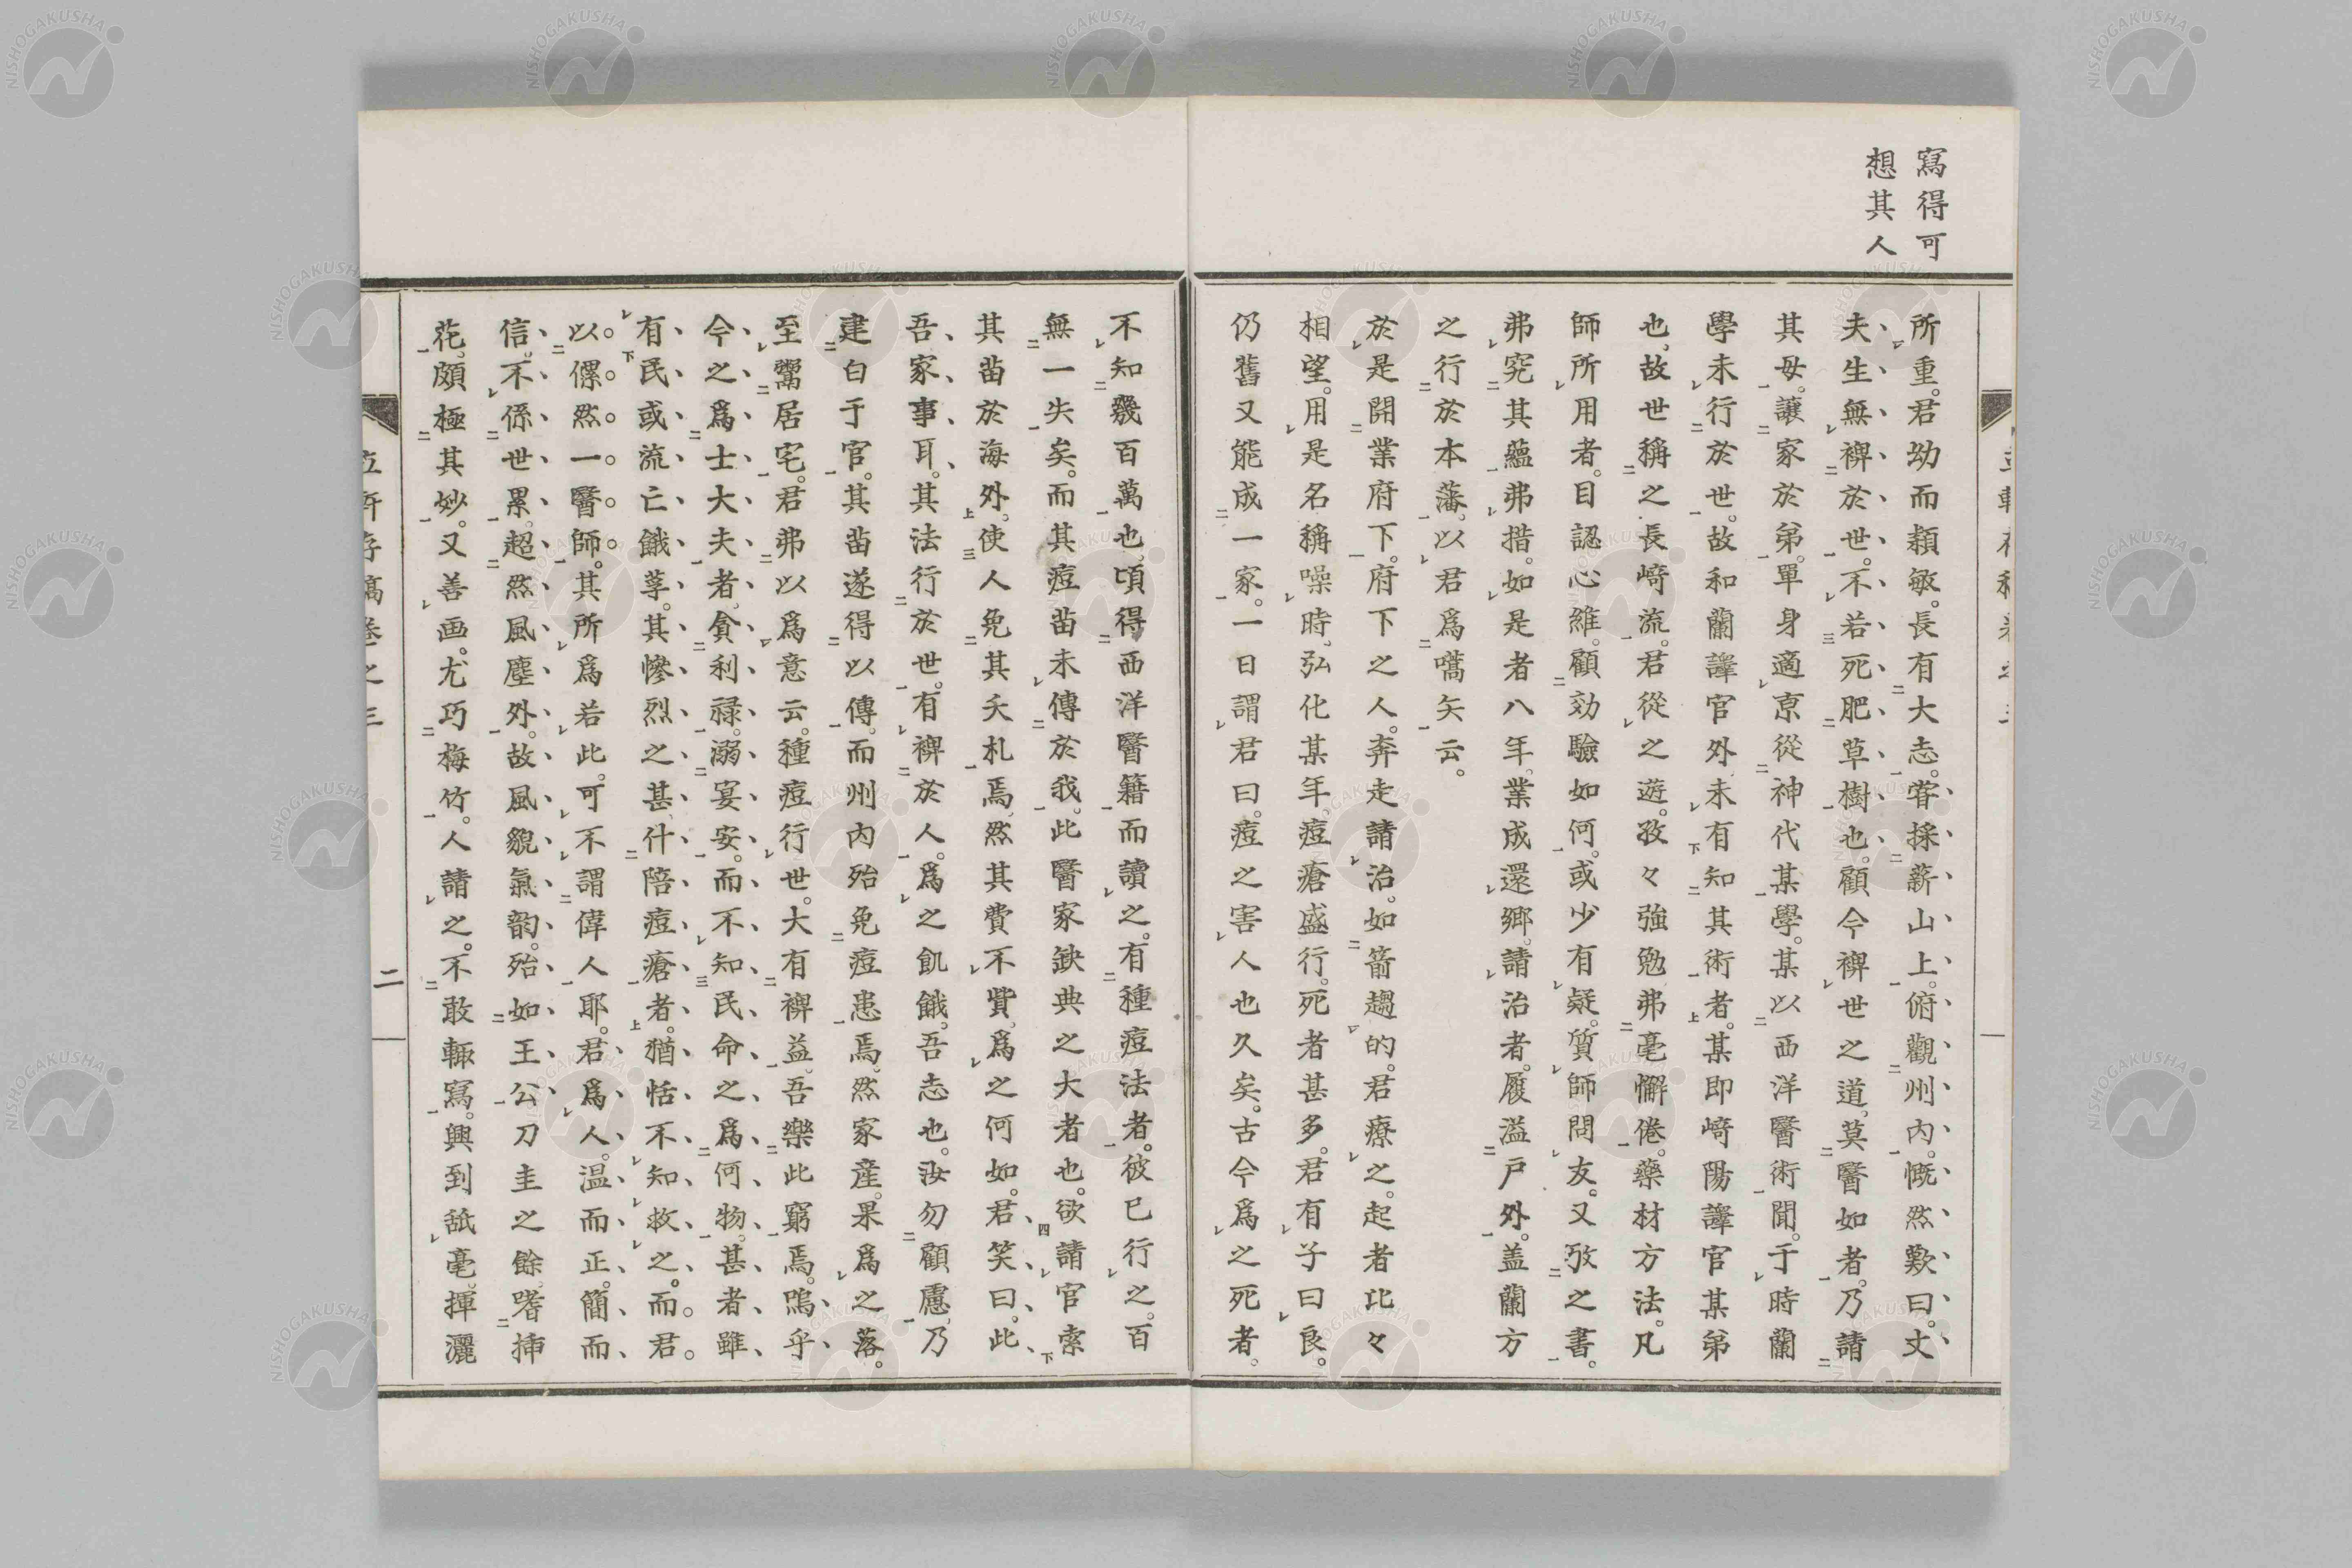 寫得可
想其人
所重。君幼而穎敏。長有大志。嘗採薪山上。俯觀州內。慨然歎曰。丈
夫生無裨於世。不若死肥草樹也。顧今裨世之道。莫醫如者。乃請
其母。讓家於弟。單身適京從神代某學。某以西洋醫術聞。于時蘭
學未行於世。故和蘭譯官外。未有知其術者。某即崎陽譯官某弟
也。故世稱之長崎流。君從之遊。孜々強勉。弗毫懈倦。藥材方法。凡
師所用者。目認心維。顧効驗如何。或少有疑。質師問友。又攷之書。
弗究其蘊弗措。如是者八年。業成還鄉。請治者。履溢戶外。盖蘭方
之行於本藩。以君爲嚆矢云。
於是開業府下。府下之人。奔走請治。如箭趨的。君療之。起者比々
相望。用是名稱噪時。弘化某年痘瘡盛行。死者甚多。君有子曰良。
仍舊又能成一家。一日謂君曰。痘之害人也久矣。古今爲之死者。
不知幾百萬也。頃得西洋醫籍而讀之。有種痘法者。彼已行之。百
無一失矣。而其痘苗未傳於我。此醫家缺典之大者也。欲請官索
其苗於海外。使人免其夭札焉。然其費不貲。爲之何如。君笑曰。此
吾家事耳。其法行於世。有裨於人。爲之飢餓。吾志也。汝勿顧慮。乃
建白于官。其苗遂得以傳。而州內殆免痘患焉。然家產。果爲之落。
至鬻居宅。君弗以爲意云。種痘行世。大有裨益。吾樂此窮焉。嗚乎
今之爲士大夫者。貪利祿。溺宴安。而不知民命之爲何物。甚者雖
有民或流亡餓莩。其慘烈之甚。什陪痘瘡者。猶恬不知救之。而君。
以僳然一醫師。其所爲若此。可不謂偉人耶。君爲人。温而正。簡而
信。不係世累。超然風塵外。故風貌氣韵。殆如王公。刀圭之餘。嗜揷
花。頗極其妙。又善画。尤巧梅竹。人請之。不敢輙寫。興到舐毫。揮灑
二
NISHOGAKUSHA